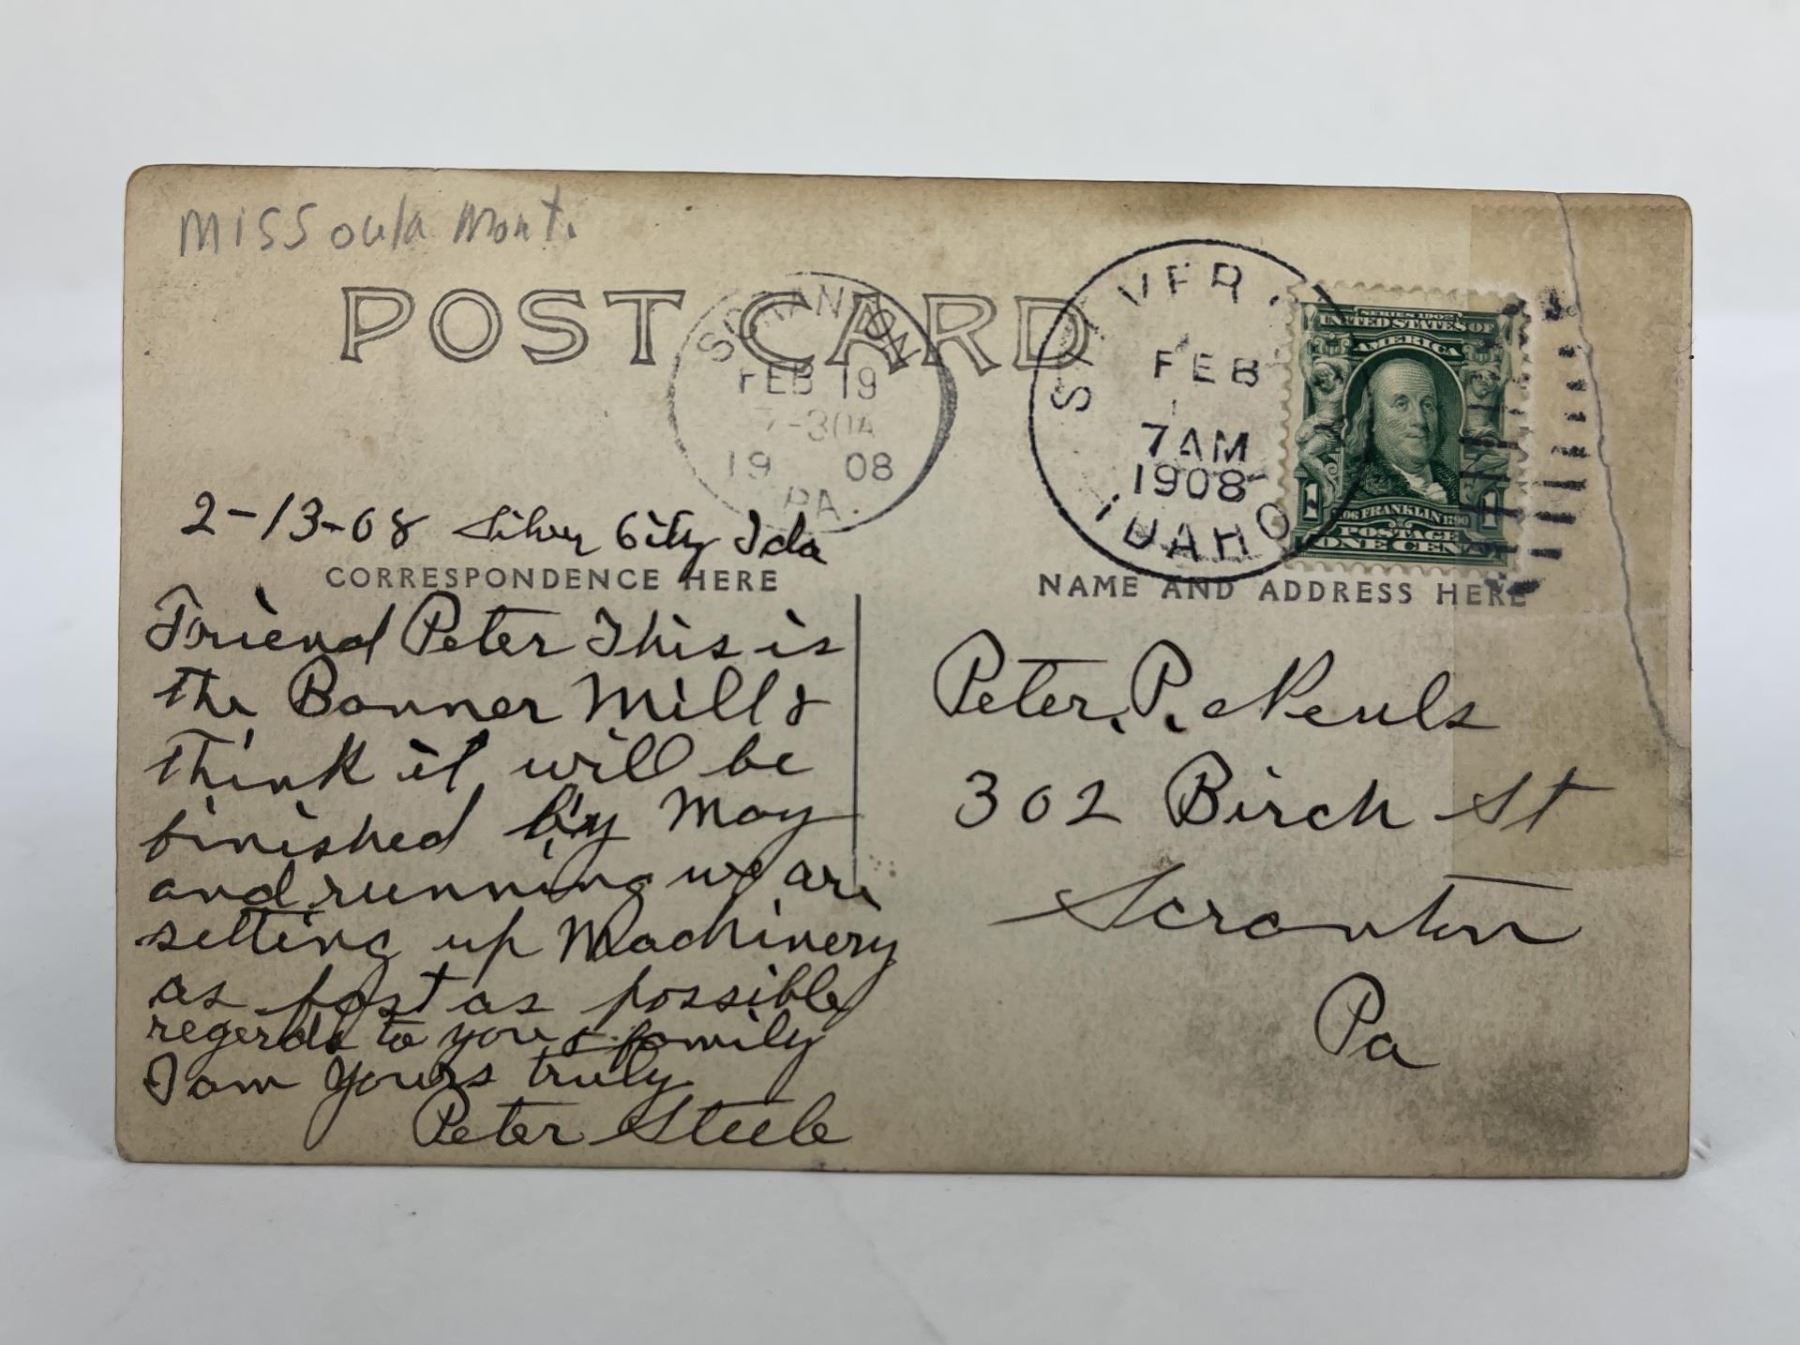 Missoula Mont.
POST CARD
SCRANTON
FEB 19
7-30A
19 08
PA.
SILVER
FEB
7 AM
1908
IDAHO
SERIES 1902
UNITED STATES OF
AMERICA
1 FRANKLIN 1790 1
POSTAGE
ONE CENT
2-13-08 Silver City Ida
CORRESPONDENCE HERE
NAME AND ADDRESS HERE
Friend Peter This is
the Banner Mill &
think it will be
finished by May
and running we are
setting up Machinery
as fast as possible
regards to you & family
I am yours truly
Peter Steele
Peter. P.
302 Birch St
Scranton
Pa